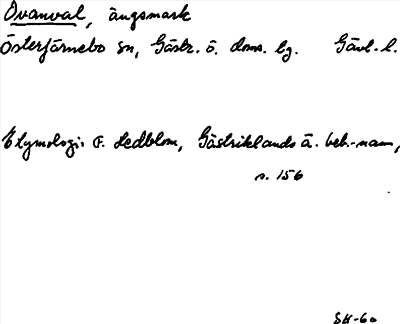 Ovanval, ängsmark
Österfärnebo sn, Gästr. ö. doms. lg. Gävl. l.
Etymologi: F. Hedblom, Gästriklands ä. beb.-namn,
s. 156
SH-60